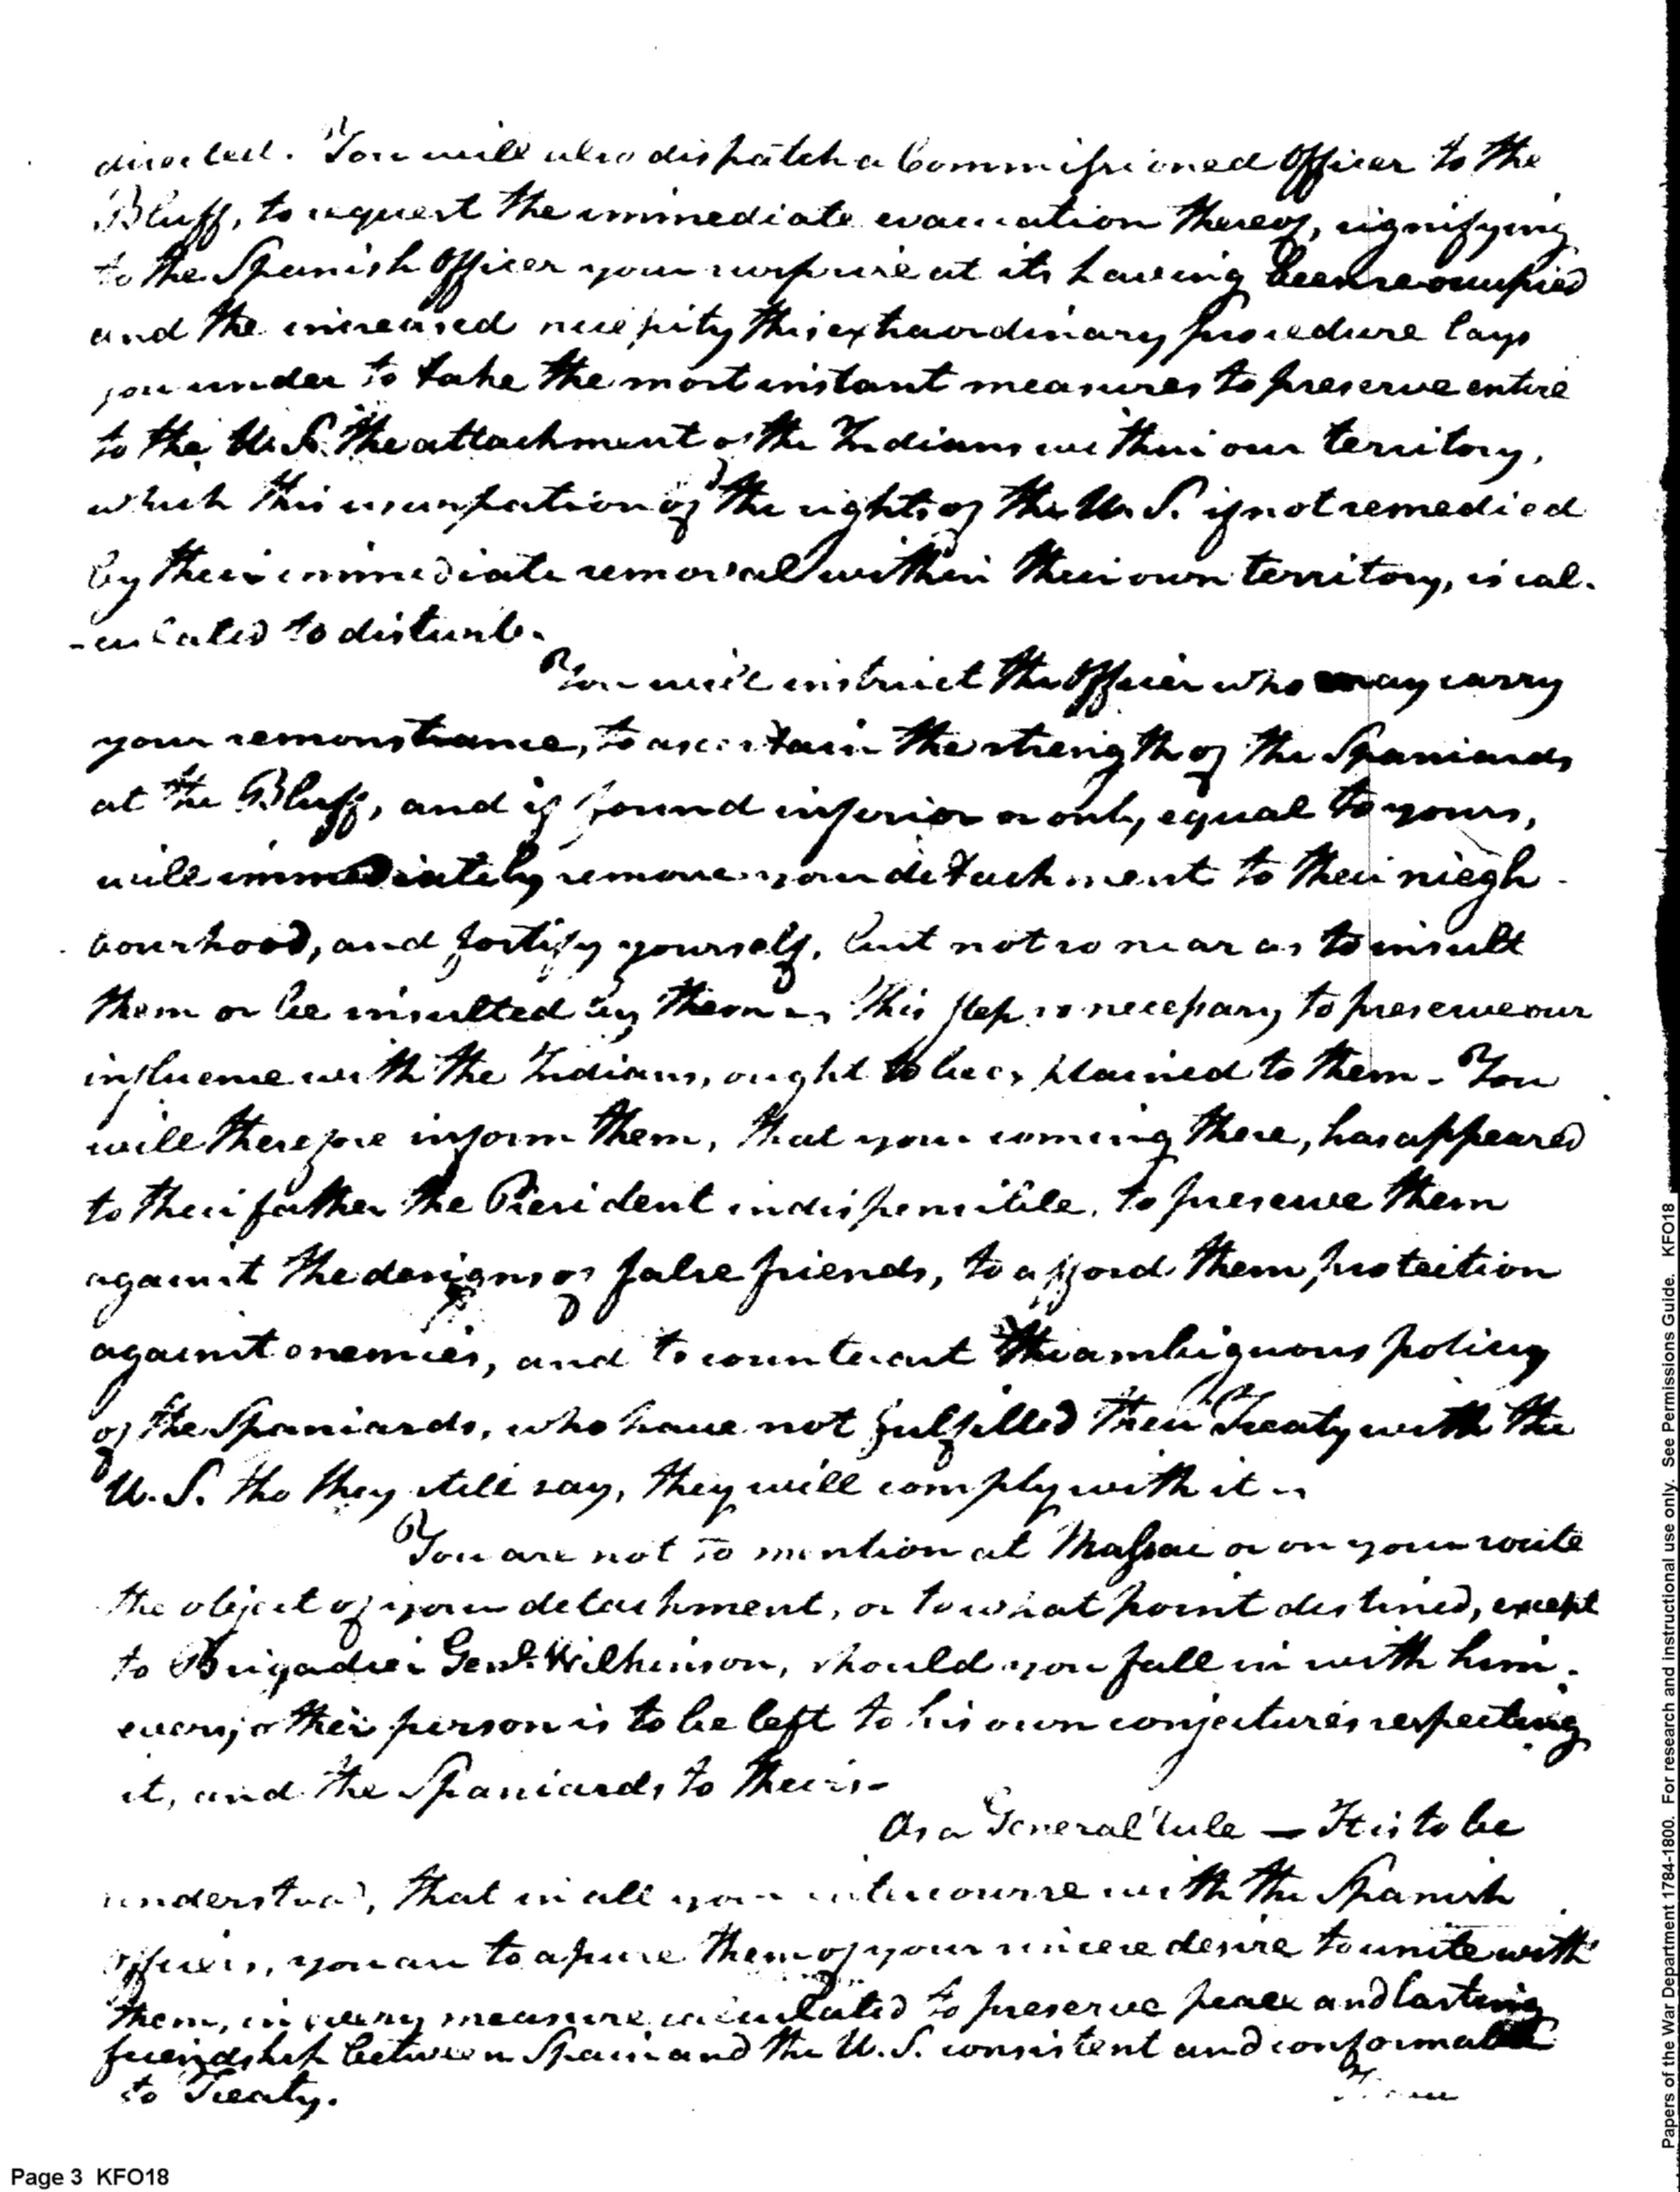 directed. You will also dispatch a Commissioned Officer to the
Bluff, to request the immediate evacuation thereof, signifying
to the Spanish Officer your surprise at its having been reoccupied
and the increased necessity this extraordinary procedure lays
you under to take the most instant measures to preserve entire
to the U.S. the attachment of the Indians within our territory,
which this usurpation of the rights of the U.S. if not remedied
by their immediate removal within their own territory, is cal-
-culated to disturb.
You will instruct the Officer who may carry
your remonstrance, to ascertain the strength of the Spaniards
at the Bluff, and if found inferior or only equal to yours,
will immediately remove your detachment to their niegh-
bourhood, and fortify yourself, but not so near as to insult
them or be insulted by them. This step is necessary to preserve our
influence with the Indians, ought to be explained to them - You
will therefore inform them, that your coming there, has appeared
to their father the President indispensible, to preserve them
against the designs of false friends, to afford them protection
against enemies, and to counteract the ambiguous policy
of the Spaniards, who have not fulfilled their Treaty with the
U.S. tho they still say, they will comply with it.
You are not to mention at Massac or on your route
the object of your detachment, or to what point destined, except
to Brigadier Genl. Wilkinson, should you fall in with him.
every other person is to be left to his own conjectures respecting
it, and the Spaniards to theirs-
As a General rule — It is to be
understood, that in all your intercourse with the Spanish
officers, you are to assure them of your sincere desire to unite with
them, in every measure calculated to preserve peace and lasting
friendship between Spain and the U.S. consistent and conformable
to Treaty.
Page 3 KFO18
Papers of the War Department 1784-1800. For research and instructional use only. See Permissions Guide. KFO18